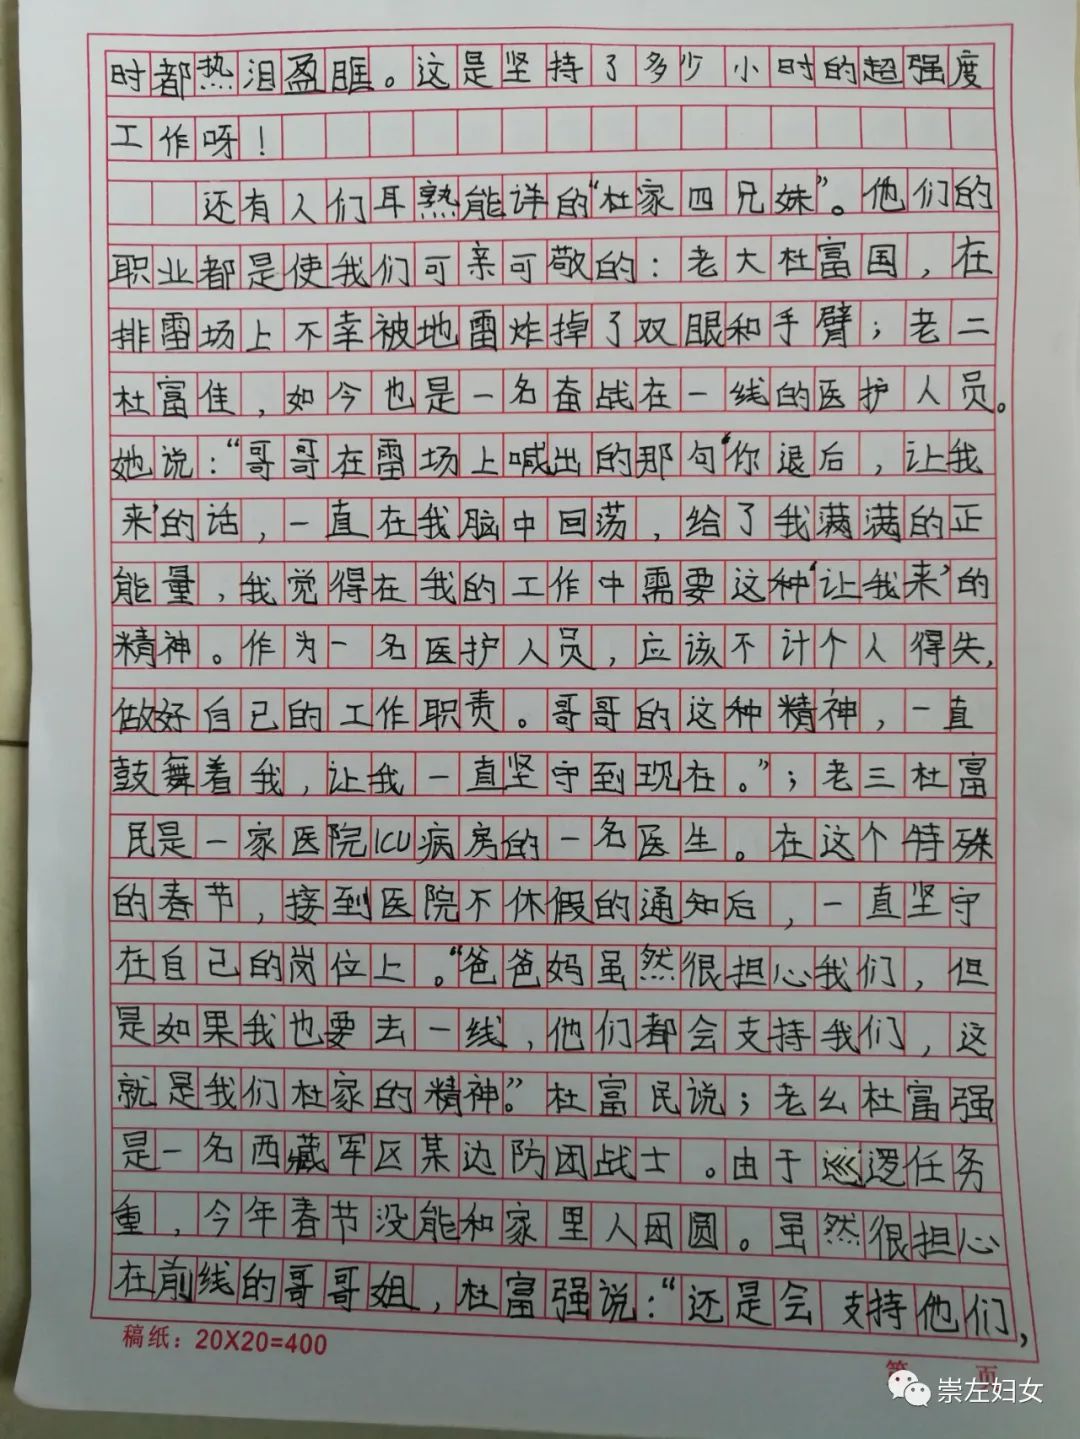 时都热泪盈眶。这是坚持了多少小时的超强度
工作呀！
还有人们耳熟能详的“杜家四兄妹”。他们的
职业都是使我们可亲可敬的：老大杜富国，在
排雷场上不幸被地雷炸掉了双眼和手臂；老二
杜富佳，如今也是一名奋战在一线的医护人员。
她说：“哥哥在雷场上喊出的那句‘你退后，让我
来’的话，一直在我脑中回荡，给了我满满的正
能量，我觉得在我的工作中需要这种‘让我来’的
精神。作为一名医护人员，应该不计个人得失，
做好自己的工作职责。哥哥的这种精神，一直
鼓舞着我，让我一直坚守到现在。”；老三杜富
民是一家医院ICU病房的一名医生。在这个特殊
的春节，接到医院不休假的通知后，一直坚守
在自己的岗位上。“爸爸妈虽然很担心我们，但
是如果我也要去一线，他们都会支持我们，这
就是我们杜家的精神。”杜富民说；老幺杜富强
是一名西藏军区某边防团战士。由于巡逻任务
重，今年春节没能和家里人团圆。虽然很担心
在前线的哥哥姐，杜富强说：“还是会支持他们，
稿纸：20X20=400
第 页
崇左妇女